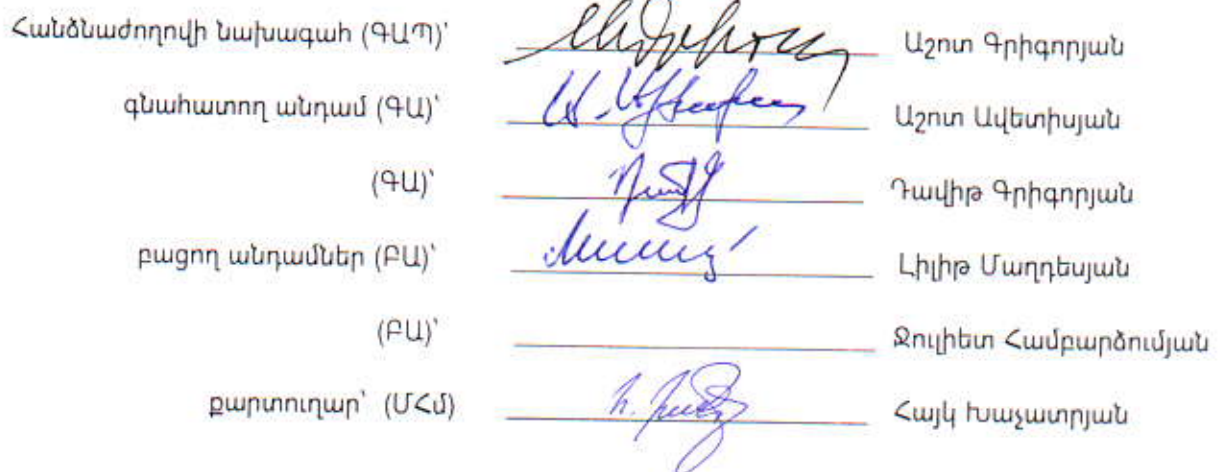 Հանձնաժողովի նախագահ (ԳԱՊ)՝ Աշոտ Գրիգորյան
գնահատող անդամ (ԳԱ)՝ Աշոտ Ավետիսյան
(ԳԱ)՝ Դավիթ Գրիգորյան
բացող անդամներ (ԲԱ)՝ Լիլիթ Մաղդեսյան
(ԲԱ)՝ Ջուլիետ Համբարձումյան
քարտուղար՝ (ՄՀմ) Հայկ Խաչատրյան